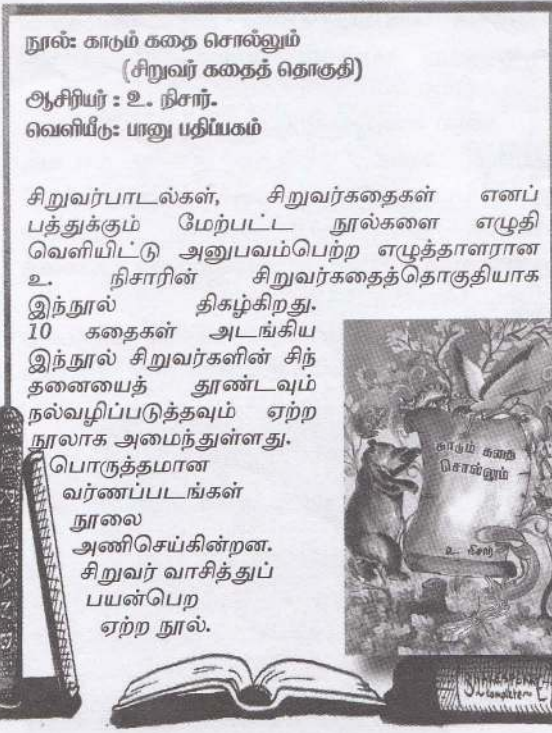 நூல்: காடும் கதை சொல்லும்
(சிறுவர் கதைத் தொகுதி)
ஆசிரியர் : உ. நிசார்.
வெளியீடு: பானு பதிப்பகம்
சிறுவர்பாடல்கள், சிறுவர்கதைகள் எனப்
பத்துக்கும் மேற்பட்ட நூல்களை எழுதி
வெளியிட்டு அனுபவம்பெற்ற எழுத்தாளரான
உ. நிசாரின் சிறுவர்கதைத்தொகுதியாக
இந்நூல் திகழ்கிறது.
10 கதைகள் அடங்கிய
இந்நூல் சிறுவர்களின் சிந்
தனையைத் தூண்டவும்
நல்வழிப்படுத்தவும் ஏற்ற
நூலாக அமைந்துள்ளது.
பொருத்தமான
வர்ணப்படங்கள்
நூலை
அணிசெய்கின்றன.
சிறுவர் வாசித்துப்
பயன்பெற
ஏற்ற நூல்.
காடும் கதை
சொல்லும்
உ. நிசார்